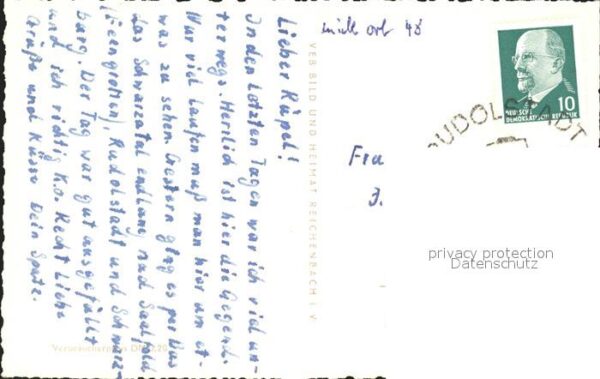 Lieber Rüpel!
In den Letzten Tagen war ich viel un-
terwegs. Herrlich ist hier die Gegend.
Nur viel Laufen muß man hier um et-
was zu sehen. Gestern ging es per Bus
das Schwarzatal endlang nach Saalfeld
(Feengrotten), Rudolstadt und Schwarz-
burg. Der Tag war gut ausgefüllt
und ich richtig K.O. Recht Liebe
Grüße und Küsse Dein Spatz.
Verbraucherpreis
VEB BILD UND HEIMAT REICHENBACH I. V.
Frau
J.
10
DEUTSCHE
DEMOKRATISCHE REPUBLIK
RUDOLSTADT
privacy protection
Datenschutz